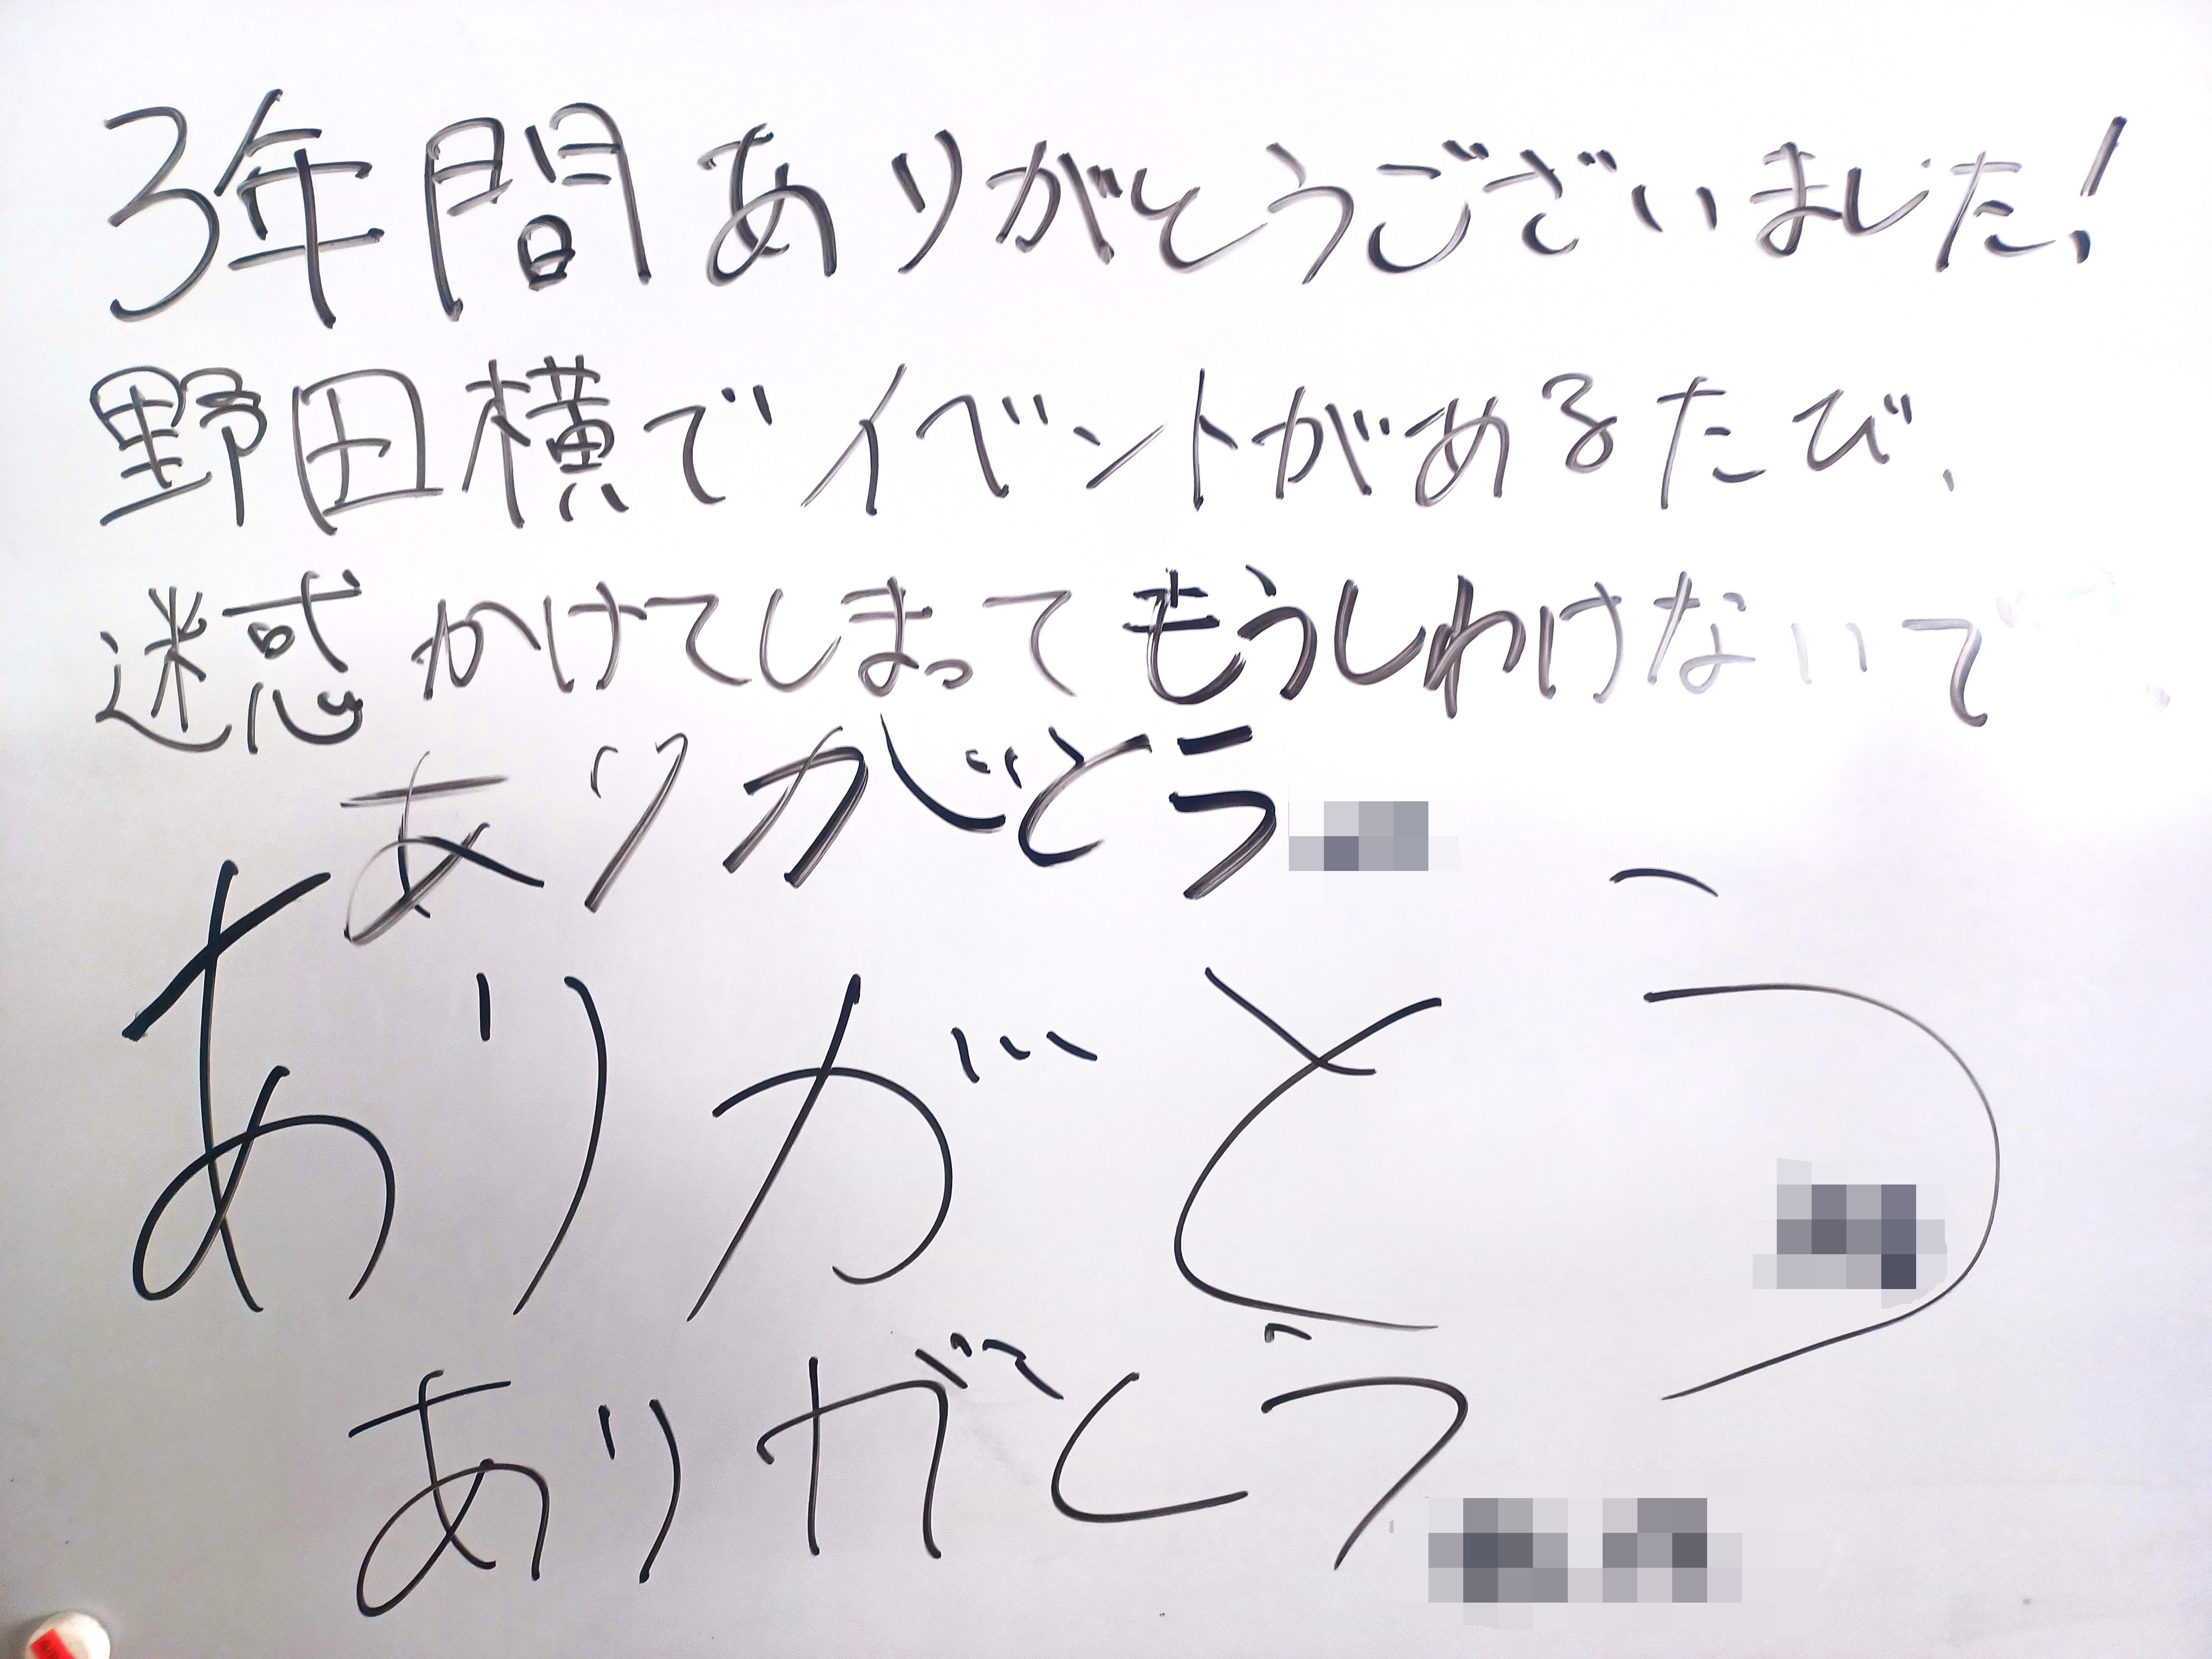 3年間ありがとうございました!
野田横でイベントがあるたび、
迷惑かけてしまってもうしわけないで
ありがとう
ありがとう
ありがとう